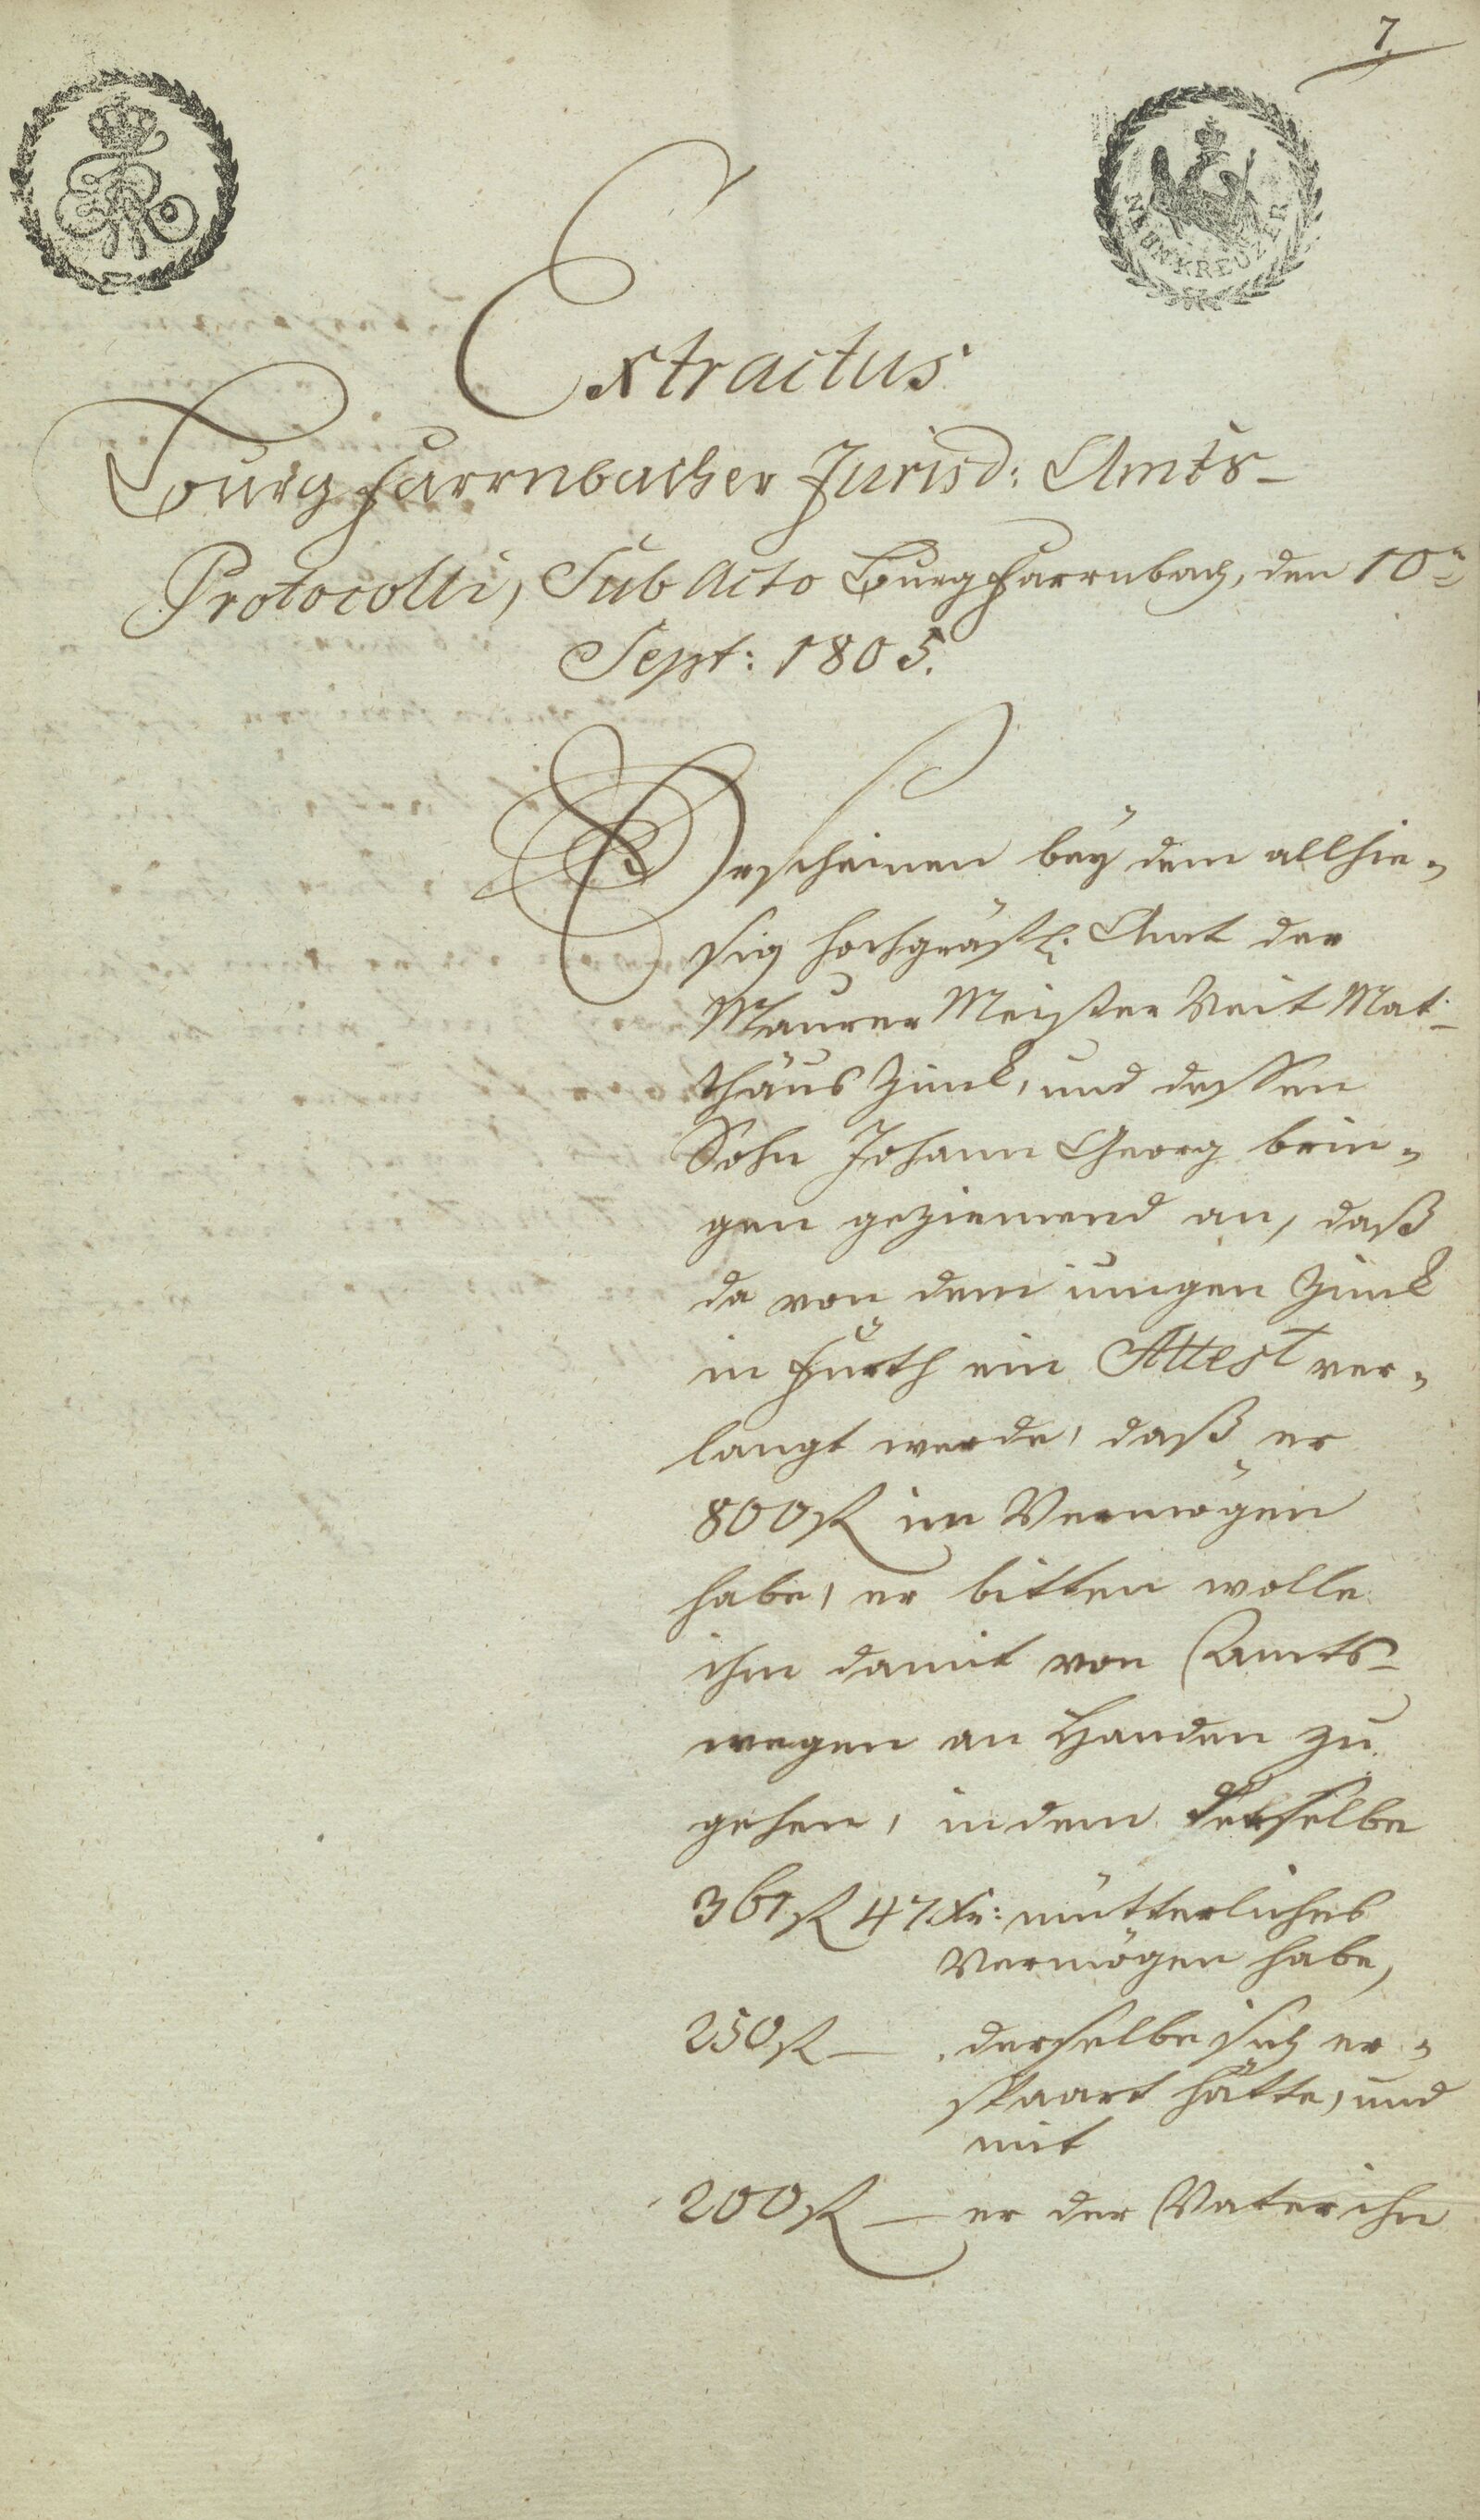 7.
NEUNKREUZER
Extractus
Burgfarrnbacher Jurisd: Amts-
Protocolli, Sub acto Burgfarrnbach, den 10n
Sept: 1805.
Erscheinen bey dem allhie-
sig hochgräfl. Amt der
Maurer Meister Veit Mat-
thäus Zink, und dessen
Sohn Johann Georg brin-
gen geziemend an, daß
da von dem iungen Zink
in Fürth ein Attest ver-
langt werde, daß er
800 fl im Vermögen
habe, er bitten wolle
ihm damit von Amts-
wegen an Handen zu
gehen, indem derselbe
361 fl 47 Xr: mütterliches
Vermögen habe,
250 fl — derselbe sich er-
spaart hätte, und
mit
200 fl — er der Vater ihn